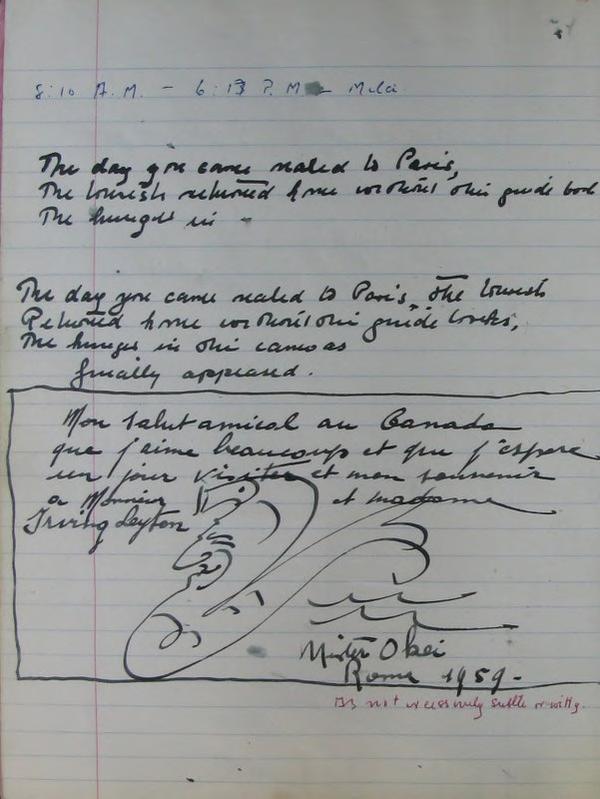 8:10 A.M. - 6:13 P.M. -
The day you came naked to Paris,
The tourists returned home without their guide books
The hunger in -
The day you came naked to Paris, The tourists
Returned home without their guide books,
The hunger in their cameras
finally appeased.
Mon salut amical au Canada
que j'aime beaucoup et que j'espère
un jour visiter et mon souvenir
a Monsieur et madame
Irving Layton
Mister Okei
Rome 1959-
not excessively subtle or witty.